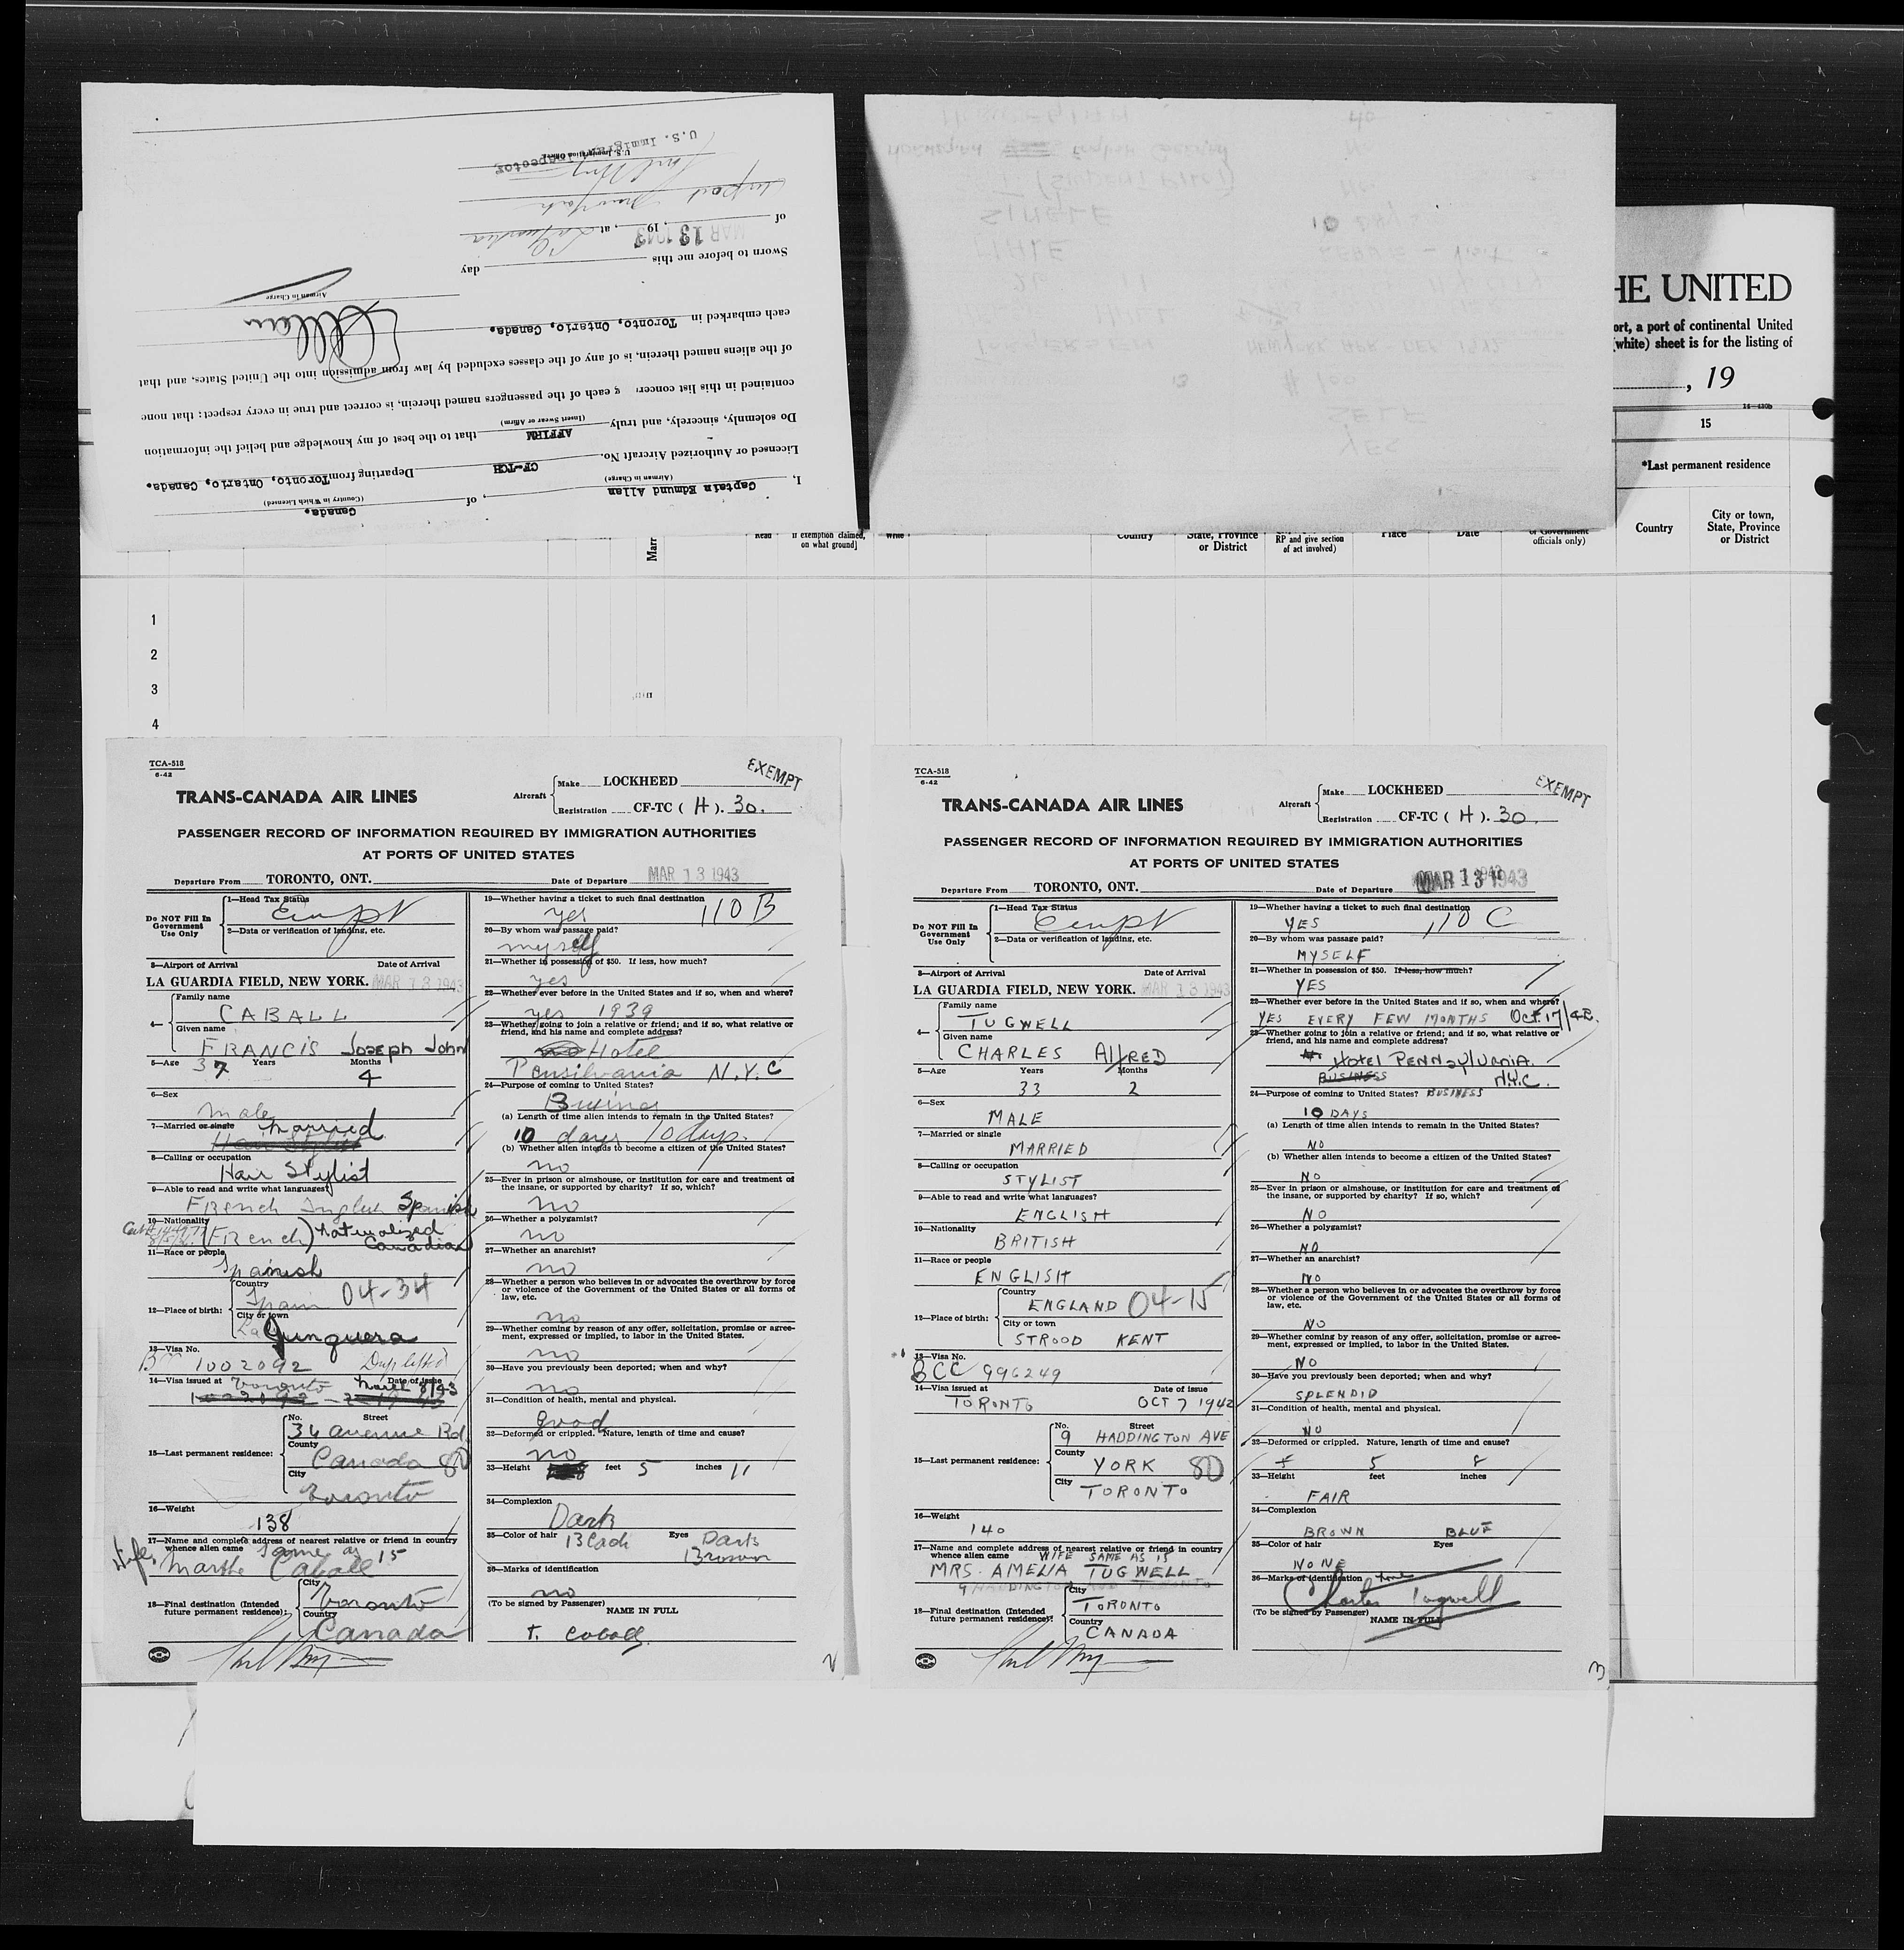 I, Captain Edmund Allan, of Canada.
(Airman in Charge) (Country in Which Licensed)
Licensed or Authorized Aircraft No. CF-TCH Departing from Toronto, Ontario, Canada.
Do solemnly, sincerely, and truly AFFIRM that to the best of my knowledge and belief the information
(Insert Swear or Affirm)
contained in this list concer g each of the passengers named therein, is correct and true in every respect: that none
of the aliens named therein, is of any of the classes excluded by law from admission into the United States, and that
each embarked in Toronto, Ontario, Canada.
Allan
Airman in Charge
Sworn to before me this day
of MAR 13 1943, 19, at La Guardia
Airport New York
U.S. Immigration Officer
U.S. Immigrant Inspector
HE UNITED
ort, a port of continental United
(white) sheet is for the listing of
, 19
16-430b
15
*Last permanent residence
Country
City or town, State, Province or District
Marr
Read
if exemption claimed, on what ground]
Write
Country
State, Province or District
RP and give section of act involved)
Place
Date
of Government officials only)
1
2
3
4
TCA-518
6-42
TRANS-CANADA AIR LINES
Aircraft
Make LOCKHEED
Registration CF-TC ( H ). 30.
EXEMPT
PASSENGER RECORD OF INFORMATION REQUIRED BY IMMIGRATION AUTHORITIES
AT PORTS OF UNITED STATES
Departure From TORONTO, ONT. Date of Departure MAR 13 1943
Do NOT Fill In Government Use Only
1—Head Tax Status
Exempt
2—Data or verification of landing, etc.
3—Airport of Arrival Date of Arrival
LA GUARDIA FIELD, NEW YORK. MAR 13 1943
4—
Family name
CABALL
Given name
FRANCIS Joseph John
5—Age 37 Years Months 4
6—Sex
male
7—Married or single married
Hair Stylist
8—Calling or occupation
Hair Stylist
9—Able to read and write what languages?
French English Spanish
10—Nationality
(French) Naturalized Canadian
11—Race or people
Spanish
12—Place of birth:
Country
Spain 04-34
City or town
La Junquera
13—Visa No.
BCC 1002092 Dup lifted
14—Visa issued at Toronto Date of issue March 8/43
15—Last permanent residence:
No. Street
36 Avenue Rd.
County
Canada 80
City
Toronto
16—Weight
138
17—Name and complete address of nearest relative or friend in country
whence alien came Same as 15
Wife, Marthe Caball
18—Final destination (Intended future permanent residence):
City
Toronto
Country
Canada
19—Whether having a ticket to such final destination
yes 110 B
20—By whom was passage paid?
myself
21—Whether in possession of $50. If less, how much?
yes
22—Whether ever before in the United States and if so, when and where?
yes 1939
23—Whether going to join a relative or friend; and if so, what relative or
friend, and his name and complete address?
no Hotel
Pensilvania N.Y.C
24—Purpose of coming to United States?
Business
(a) Length of time alien intends to remain in the United States?
10 days 10 days.
(b) Whether alien intends to become a citizen of the United States?
no
25—Ever in prison or almshouse, or institution for care and treatment of
the insane, or supported by charity? If so, which?
no
26—Whether a polygamist?
no
27—Whether an anarchist?
no
28—Whether a person who believes in or advocates the overthrow by force
or violence of the Government of the United States or all forms of
law, etc.
no
29—Whether coming by reason of any offer, solicitation, promise or agree-
ment, expressed or implied, to labor in the United States.
no
30—Have you previously been deported; when and why?
no
31—Condition of health, mental and physical.
good
32—Deformed or crippled. Nature, length of time and cause?
no
33—Height feet 5 inches 11
34—Complexion
Dark
35—Color of hair Eyes Dark
Black Brown
36—Marks of identification
no
(To be signed by Passenger)
NAME IN FULL
F. Caball
2
TCA-518
6-42
TRANS-CANADA AIR LINES
Aircraft
Make LOCKHEED
Registration CF-TC ( H ). 30.
EXEMPT
PASSENGER RECORD OF INFORMATION REQUIRED BY IMMIGRATION AUTHORITIES
AT PORTS OF UNITED STATES
Departure From TORONTO, ONT. Date of Departure MAR 13 1943
Do NOT Fill In Government Use Only
1—Head Tax Status
Exempt
2—Data or verification of landing, etc.
3—Airport of Arrival Date of Arrival
LA GUARDIA FIELD, NEW YORK. MAR 13 1943
4—
Family name
TUGWELL
Given name
CHARLES AlfRED
5—Age Years Months
33 2
6—Sex
MALE
7—Married or single
MARRIED
8—Calling or occupation
STYLIST
9—Able to read and write what languages?
ENGLISH
10—Nationality
BRITISH
11—Race or people
ENGLISH
12—Place of birth:
Country
ENGLAND 04-15
City or town
STROOD KENT
13—Visa No.
BCC 996249
14—Visa issued at Date of issue
TORONTO OCT 7 1942
15—Last permanent residence:
No. Street
9 HADDINGTON AVE
County
YORK 80
City
TORONTO
16—Weight
140
17—Name and complete address of nearest relative or friend in country
whence alien came WIFE SAME AS 15
MRS. AMELIA TUGWELL
18—Final destination (Intended future permanent residence):
City
TORONTO
Country
CANADA
19—Whether having a ticket to such final destination
YES 110 C
20—By whom was passage paid?
MYSELF
21—Whether in possession of $50. If less, how much?
YES
22—Whether ever before in the United States and if so, when and where?
YES EVERY FEW MONTHS OCT. 17/42.
23—Whether going to join a relative or friend; and if so, what relative or
friend, and his name and complete address?
Hotel PENNSylVANIA.
BUSINESS N.Y.C.
24—Purpose of coming to United States? BUSINESS
10 DAYS
(a) Length of time alien intends to remain in the United States?
NO
(b) Whether alien intends to become a citizen of the United States?
NO
25—Ever in prison or almshouse, or institution for care and treatment of
the insane, or supported by charity? If so, which?
NO
26—Whether a polygamist?
NO
27—Whether an anarchist?
NO
28—Whether a person who believes in or advocates the overthrow by force
or violence of the Government of the United States or all forms of
law, etc.
NO
29—Whether coming by reason of any offer, solicitation, promise or agree-
ment, expressed or implied, to labor in the United States.
NO
30—Have you previously been deported; when and why?
SPLENDID
31—Condition of health, mental and physical.
NO
32—Deformed or crippled. Nature, length of time and cause?
5 8
33—Height feet inches
FAIR
34—Complexion
BROWN BLUE
35—Color of hair Eyes
NONE
36—Marks of identification
Charles Tugwell
(To be signed by Passenger)
NAME IN FULL
3